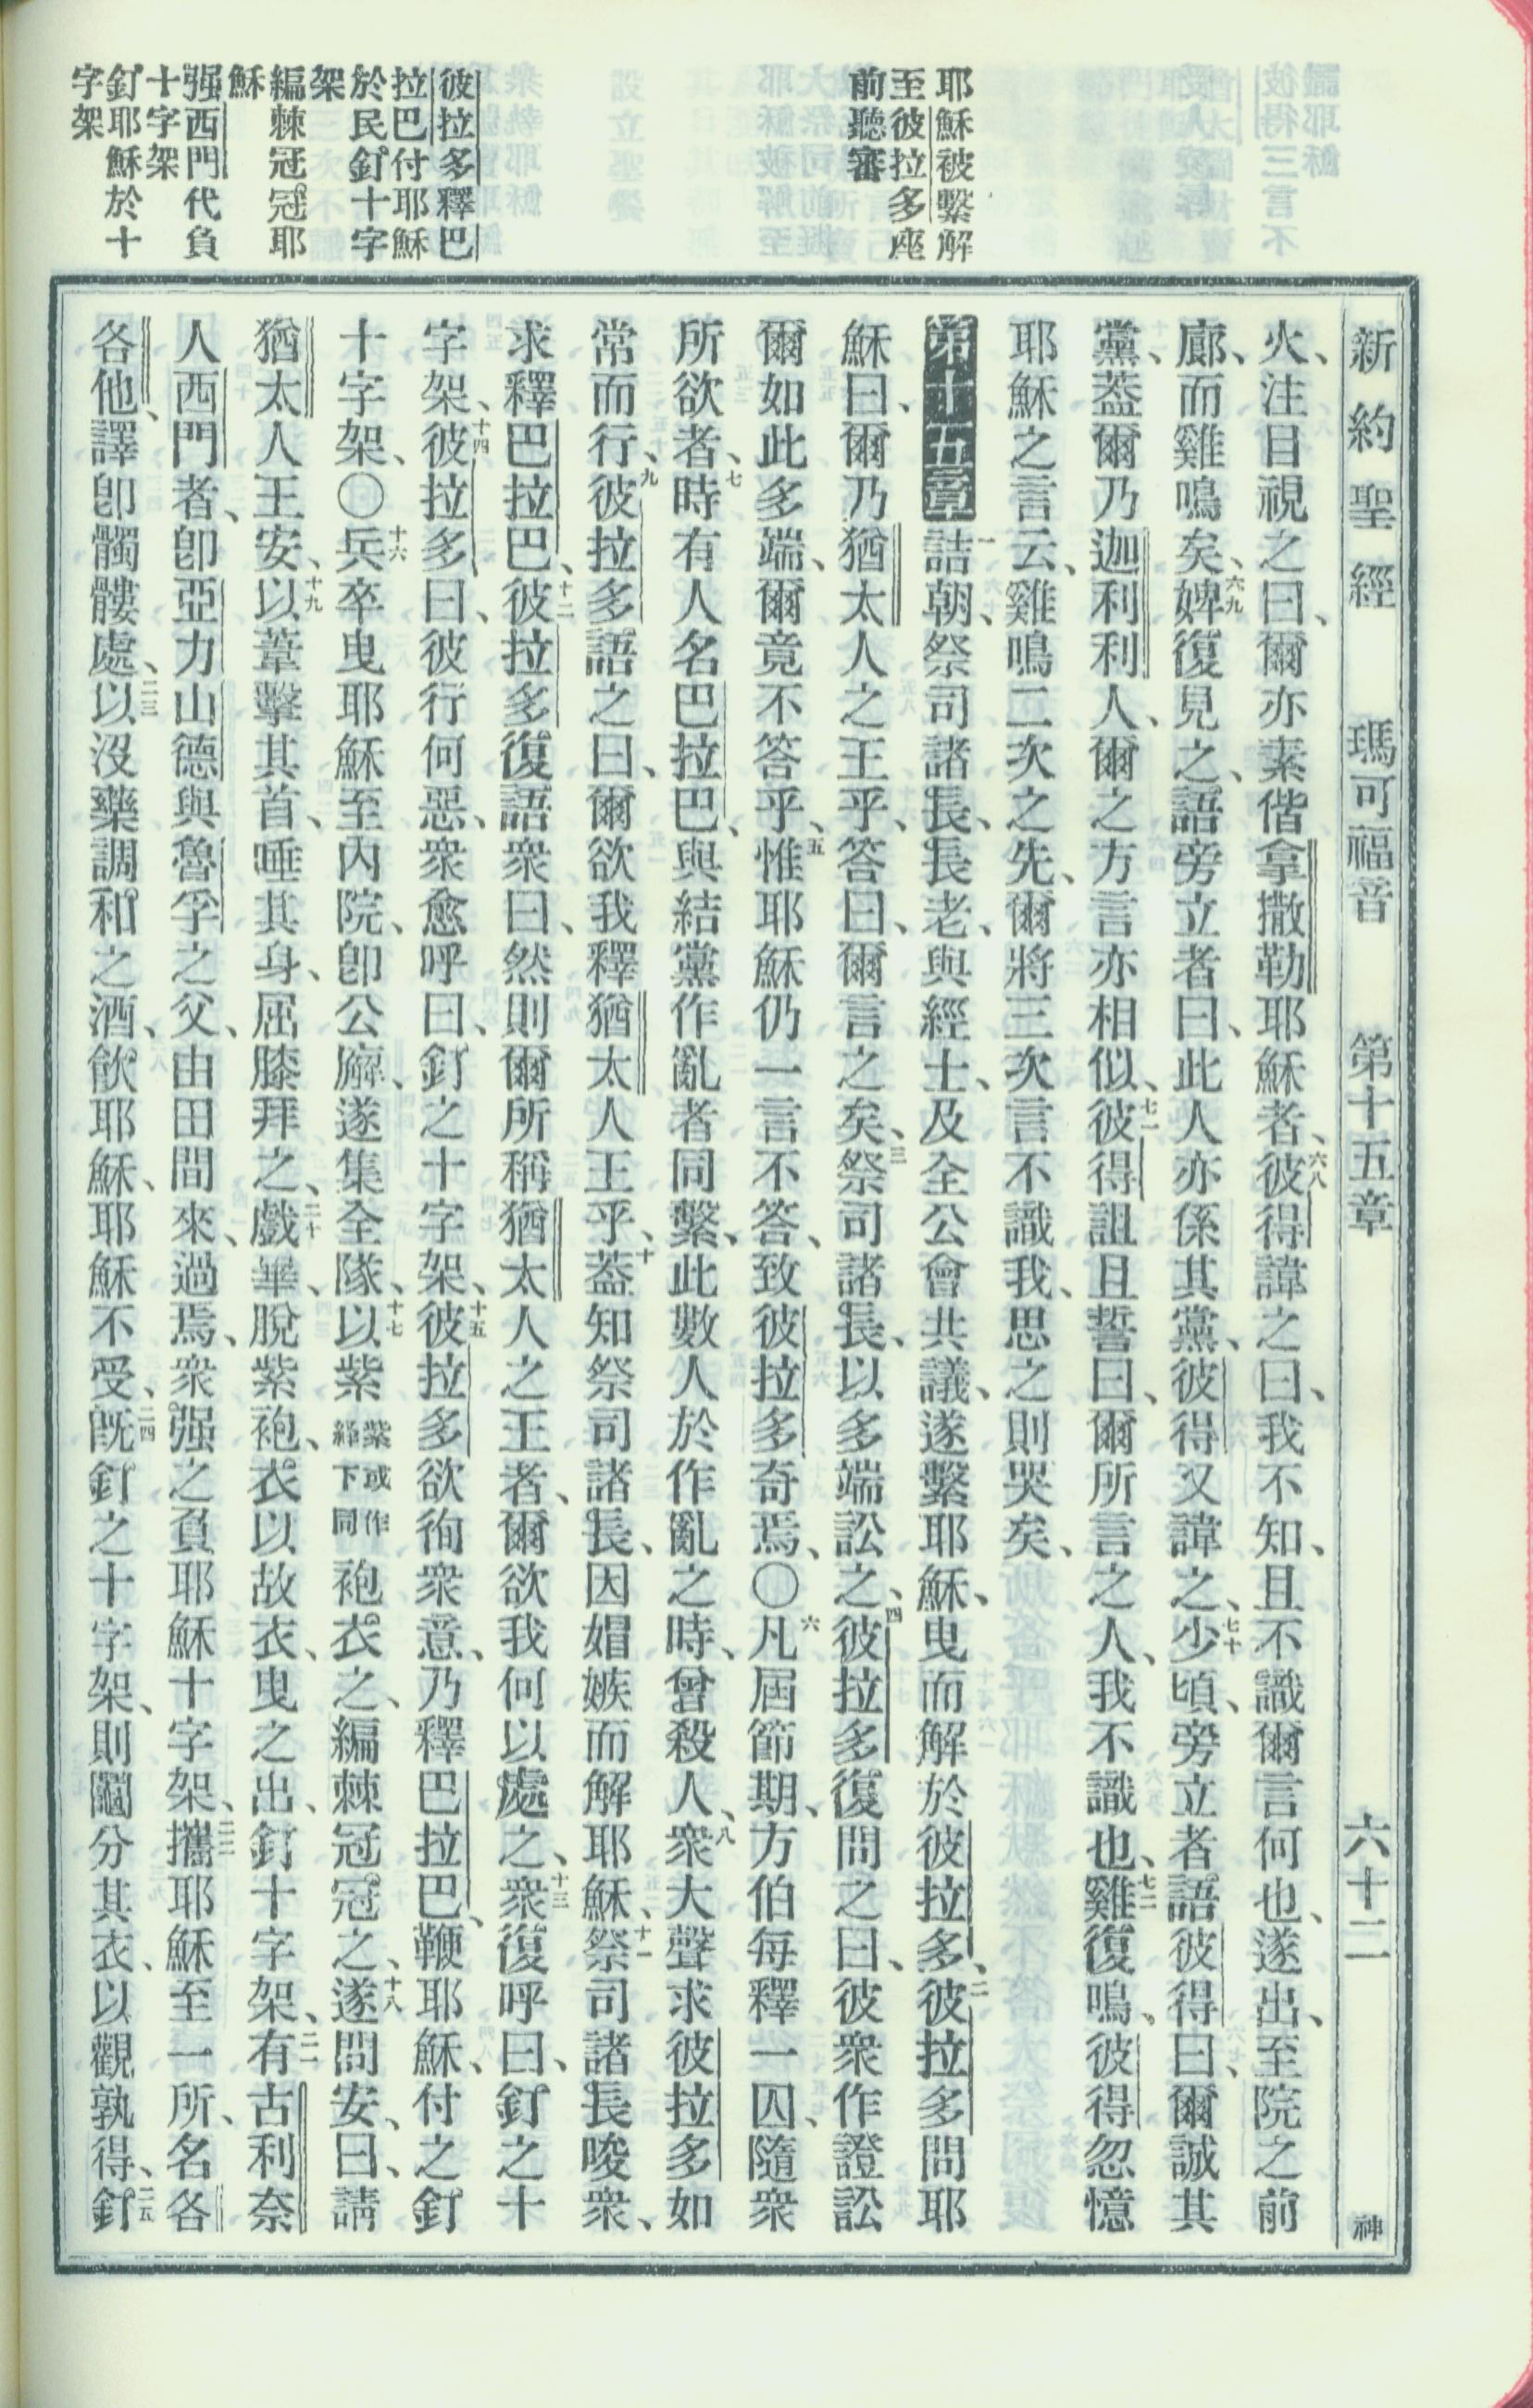 新約聖經 瑪可福音 第十五章 六十二 神
耶穌被繫解
至彼拉多座
前聽審
彼拉多釋巴
拉巴付耶穌
於民釘十字
架
編棘冠冠耶
穌
强西門代負
十字架
釘耶穌於十
字架
火、注目視之曰、爾亦素偕拿撒勒耶穌者、六八彼得諱之曰、我不知、且不識爾言何也、遂出、至院之前
廊、而雞鳴矣、六九婢復見之、語旁立者曰、此人亦係其黨、彼得又諱之、七十少頃、旁立者語彼得曰、爾誠其
黨、蓋爾乃迦利利人、爾之方言亦相似、七一彼得詛且誓曰、爾所言之人、我不識也、七二雞復鳴、彼得忽憶
耶穌之言云、雞鳴二次之先、爾將三次言不識我、思之則哭矣、
第十五章 一詰朝、祭司諸長、長老、與經士、及全公會共議、遂繫耶穌、曳而解於彼拉多、二彼拉多問耶
穌曰、爾乃猶太人之王乎、答曰、爾言之矣、三祭司諸長、以多端訟之、四彼拉多復問之曰、彼衆作證訟
爾如此多端、爾竟不答乎、五惟耶穌仍一言不答、致彼拉多奇焉、〇六凡屆節期、方伯每釋一囚、隨衆
所欲者、七時有人名巴拉巴、與結黨作亂者同繫、此數人於作亂之時、曾殺人、八衆大聲求彼拉多如
常而行、九彼拉多語之曰、爾欲我釋猶太人王乎、十蓋知祭司諸長、因媢嫉而解耶穌、十一祭司諸長唆衆、
求釋巴拉巴、十二彼拉多復語衆曰、然則爾所稱猶太人之王者、爾欲我何以處之、十三衆復呼曰、釘之十
字架、十四彼拉多曰、彼行何惡、衆愈呼曰、釘之十字架、十五彼拉多欲徇衆意、乃釋巴拉巴、鞭耶穌、付之釘
十字架、〇十六兵卒曳耶穌至內院、卽公廨、遂集全隊、十七以紫紫或作絳下同袍衣之、編棘冠冠之、十八遂問安、曰、請
猶太人王安、十九以葦擊其首、唾其身、屈膝拜之、二十戲畢、脫紫袍、衣以故衣、曳之出、釘十字架、二一有古利奈
人西門者、卽亞力山德與魯孚之父、由田間來、過焉、衆强之負耶穌十字架、二二攜耶穌至一所、名各
各他、譯卽髑髏處、二三以沒藥調和之酒、飲耶穌、耶穌不受、二四旣釘之十字架、則鬮分其衣、以觀孰得、二五釘